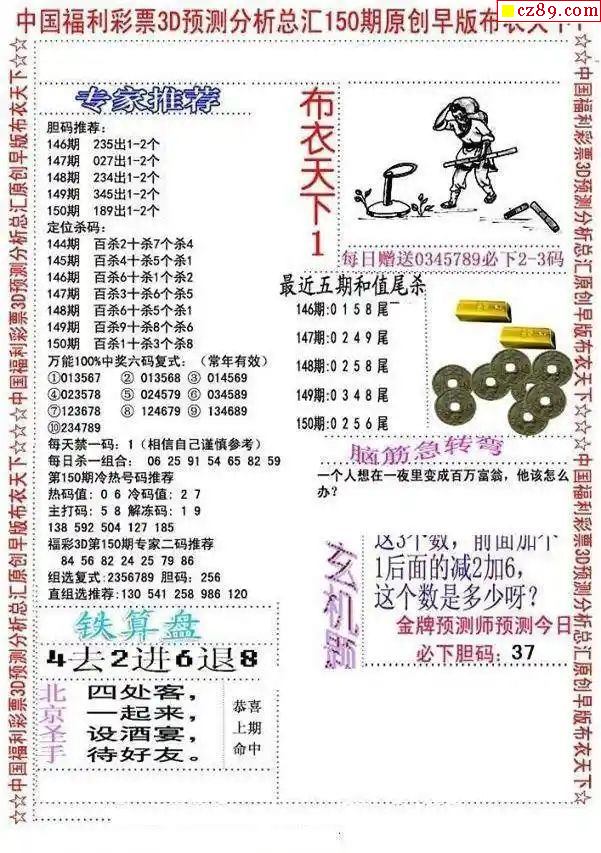 cz89.com
中国福利彩票3D预测分析总汇150期原创早版布衣天下
☆☆中国福利彩票3D预测分析总汇原创早版布衣天下☆☆
专家推荐
胆码推荐：
146期 235出1-2个
147期 027出1-2个
148期 234出1-2个
149期 345出1-2个
150期 189出1-2个
定位杀码：
144期 百杀2十杀7个杀4
145期 百杀4十杀5个杀1
146期 百杀6十杀1个杀2
147期 百杀3十杀6个杀5
148期 百杀6十杀5个杀1
149期 百杀9十杀8个杀6
150期 百杀1十杀3个杀8
万能100%中奖六码复式：（常年有效）
①013567 ②013568 ③014569
④023578 ⑤024579 ⑥034589
⑦123678 ⑧124679 ⑨134689
⑩234789
每天禁一码：1（相信自己谨慎参考）
每日杀一组合： 06 25 91 54 65 82 59
第150期冷热号码推荐
热码值：0 6 冷码值：2 7
主打码：5 8 解冻码：1 9
138 592 504 127 185
福彩3D第150期专家二码推荐
84 56 82 24 25 79 86
组选复式：2356789 胆码：256
直组选推荐：130 541 258 986 120
铁算盘
4去2进6退8
北京圣手
四处客，
一起来，
设酒宴，
待好友。
恭喜
上期
命中
布衣天下1
每日赠送0345789必下2-3码
最近五期和值尾杀
146期:0 1 5 8 尾
147期:0 2 4 9 尾
148期:0 2 5 8 尾
149期:0 3 4 8 尾
150期:0 2 5 6 尾
脑筋急转弯
一个人想在一夜里变成百万富翁，他该怎么
办？
玄机题
这3个数，前面加个
1后面的减2加6，
这个数是多少呀？
金牌预测师预测今日
必下胆码：37
☆☆中国福利彩票3D预测分析总汇原创早版布衣天下☆☆